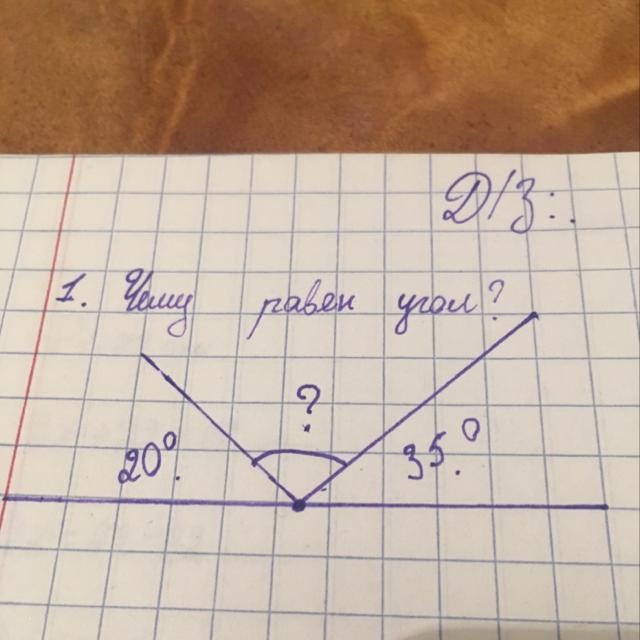 Д/З:.
1. Чему равен угол?
?
20°. 35.°